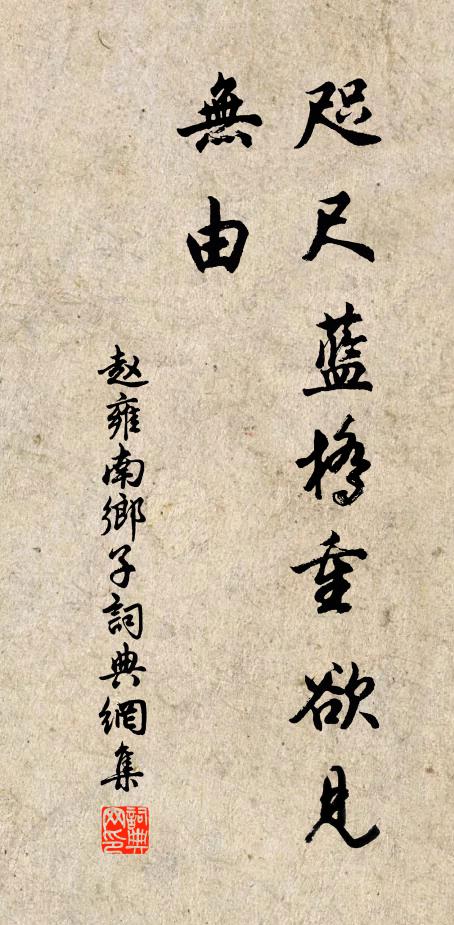 咫尺藍橋重欲見
無由
赵雍南鄉子詞典網集
詞典
网印